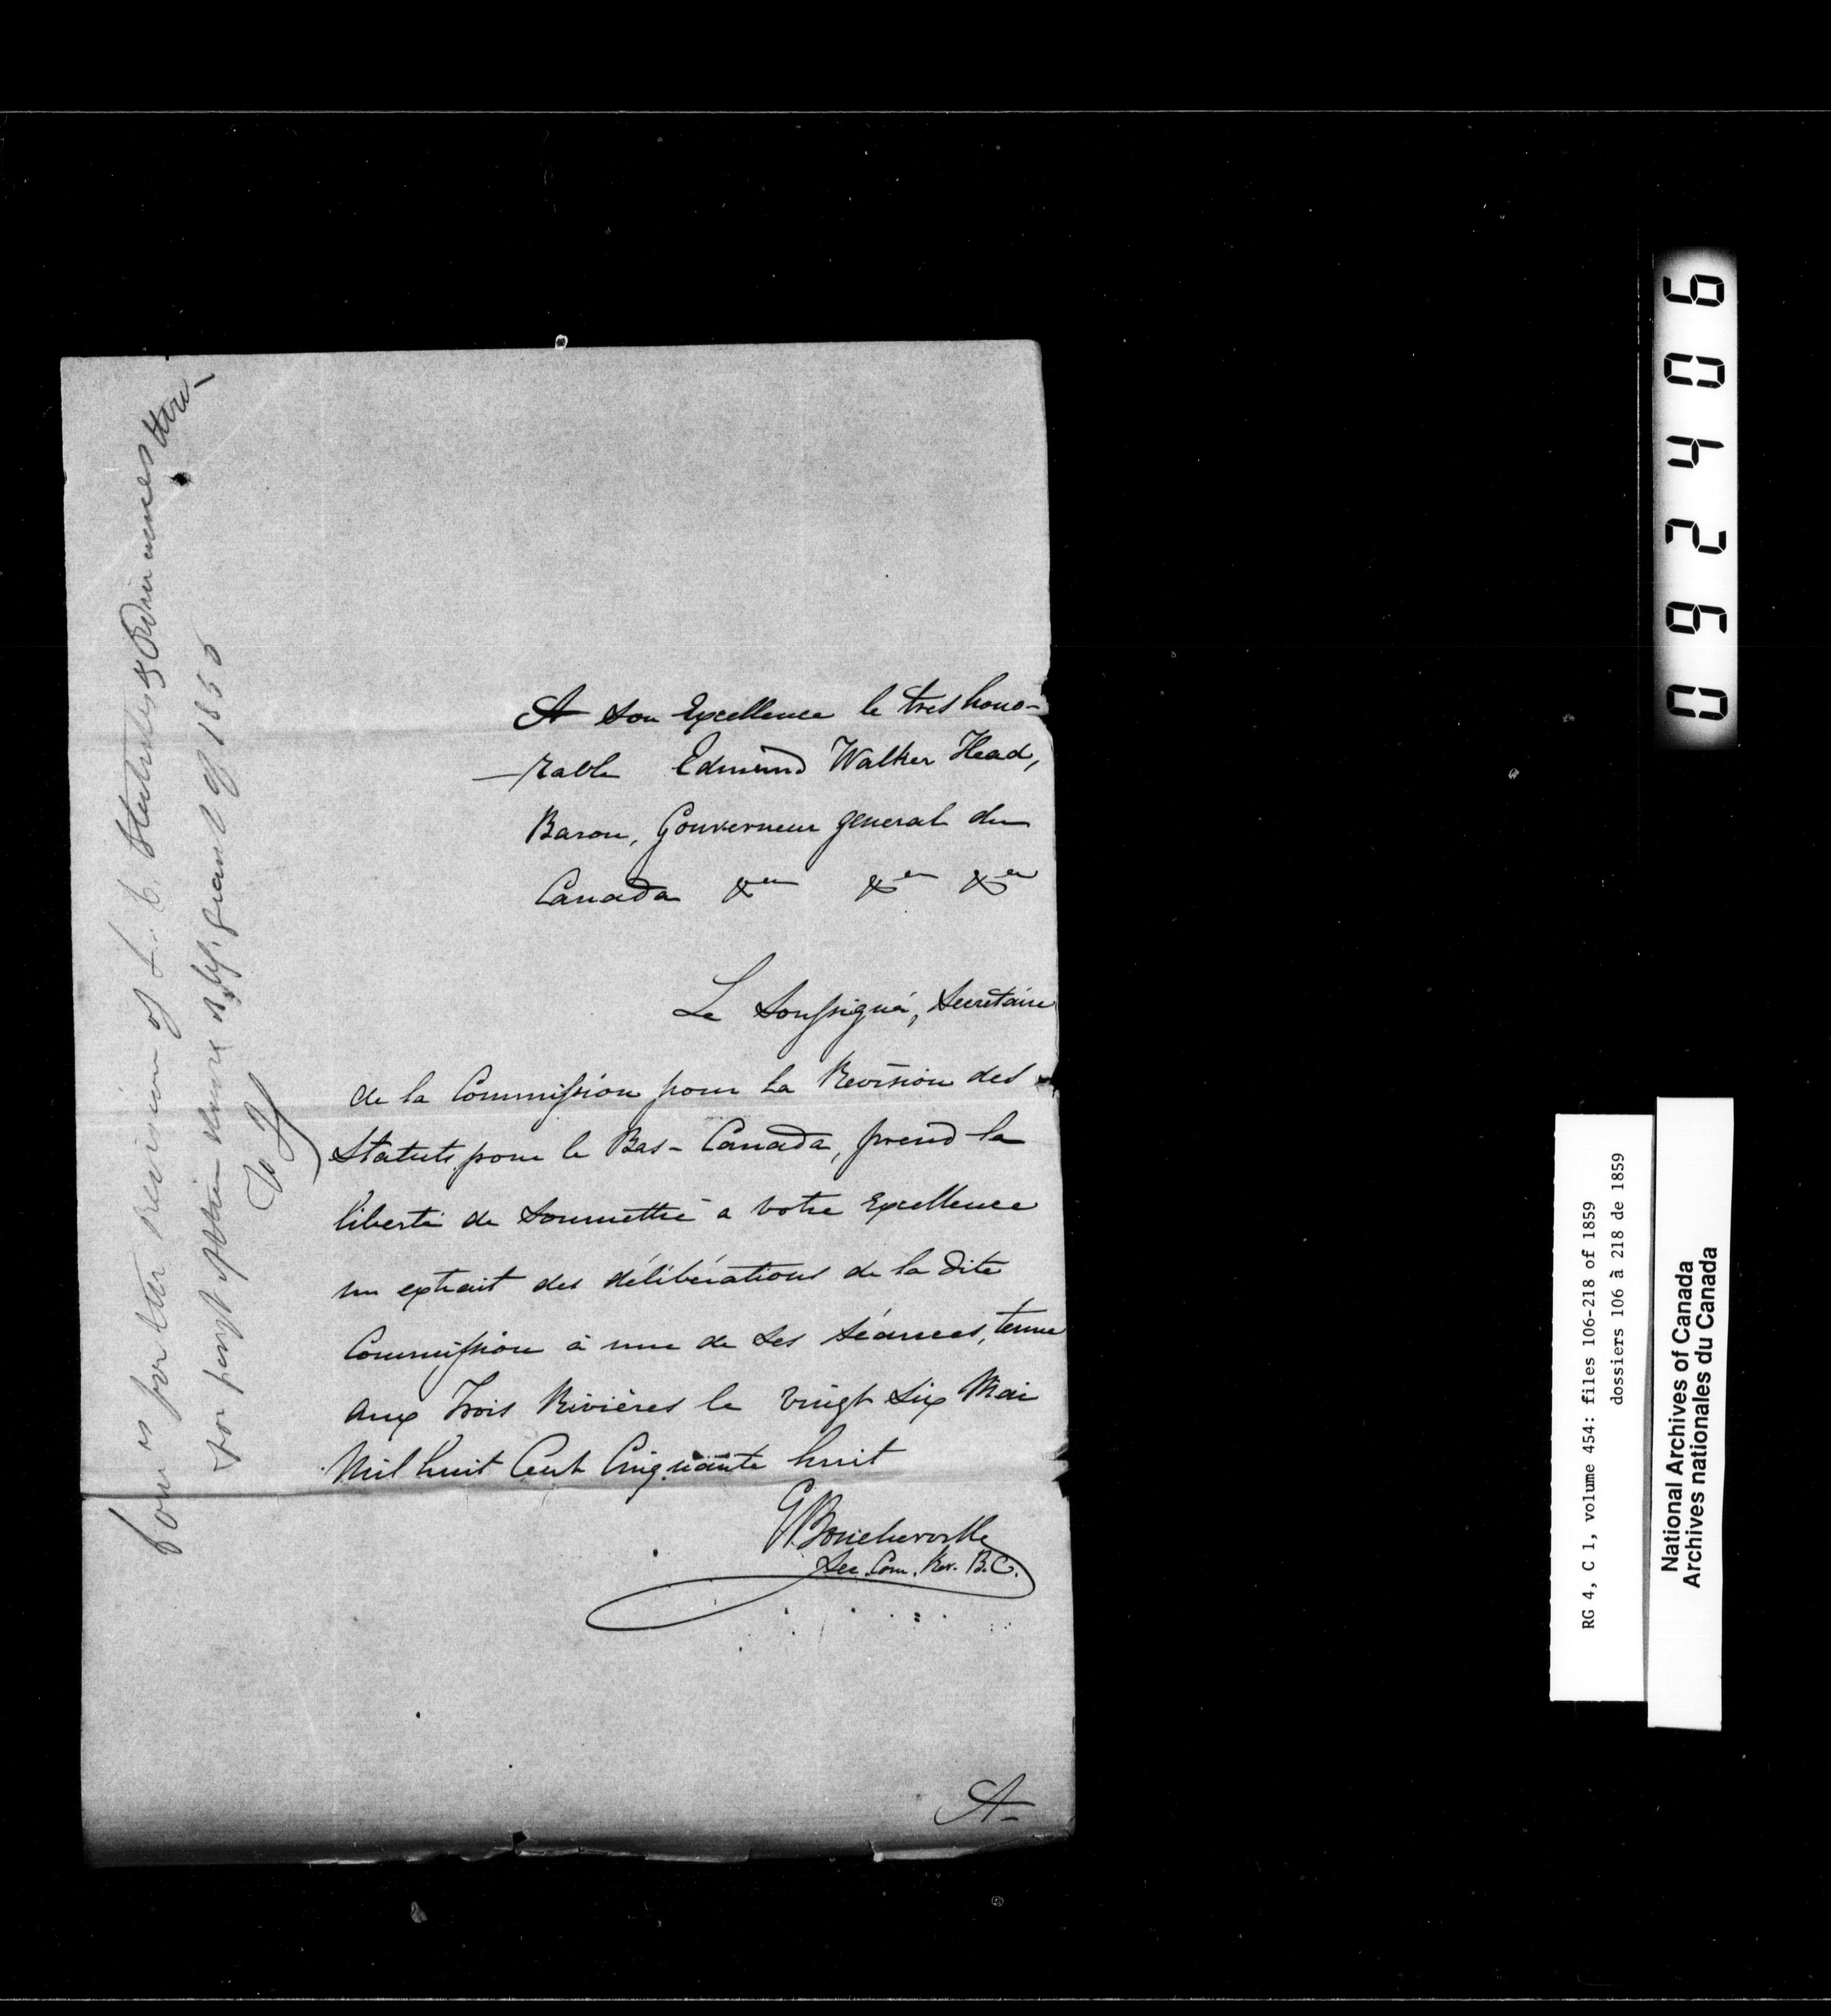 A Son Excellence le tres hono-
-rable Edmund Walker Head,
Baron, Gouverneur general du
Canada &ca &ca &ca
Le Soussigné, Secretaire
de la Commission pour la Revision des
Statuts pour le Bas-Canada, prend la
liberté de Soumettre a votre Excellence
un extrait des délibérations de la dite
Commission à une de ses séances, tenue
aux Trois Rivières le vingt six Mai
Mil huit Cent Cinquante huit
GBoucherville
Sec. Com. Rev. B.C.
A-
for Revision of L. C. Statutes & Ordinances
of 1858
092406
RG 4, C 1, volume 454: files 106-218 of 1859
dossiers 106 à 218 de 1859
National Archives of Canada
Archives nationales du Canada